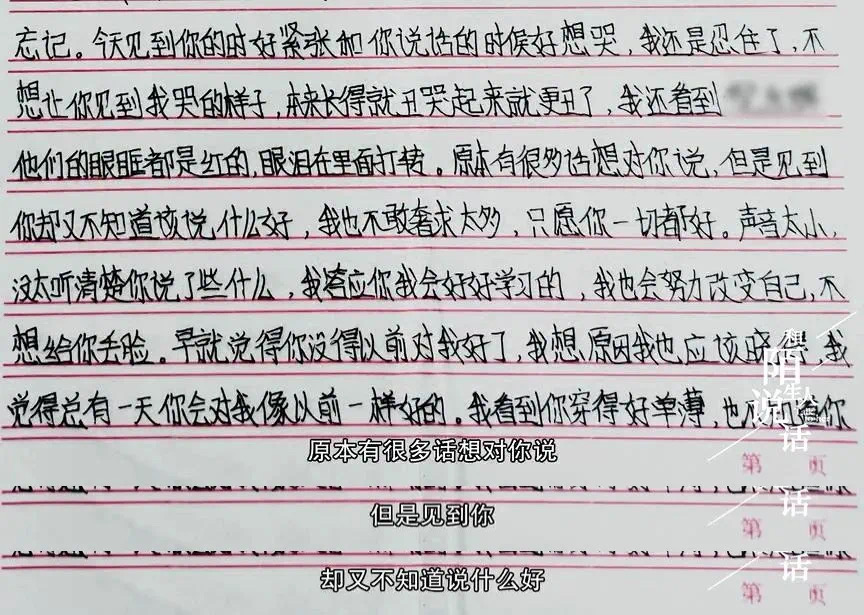 忘记。今天见到你的时好紧张和你说话的时候好想哭，我还是忍住了，不
想让你见到我哭的样子，本来长得就丑哭起来就更丑了，我还看到
他们的眼眶都是红的，眼泪在里面打转。原本有很多话想对你说，但是见到
你却又不知道该说什么好，我也不敢奢求太多，只愿你一切都好。声音太小，
没太听清楚你说了些什么，我答应你我会好好学习的，我也会努力改变自己，不
想给你丢脸。早就觉得你没得以前对我好了，我想原因我也应该晓得，我
觉得总有一天你会对我像以前一样好的。我看到你穿得好单薄，也
你
和陌生人说话
原本有很多话想对你说
第 页
但是见到你
第 页
话
却又不知道说什么好
第 页
话